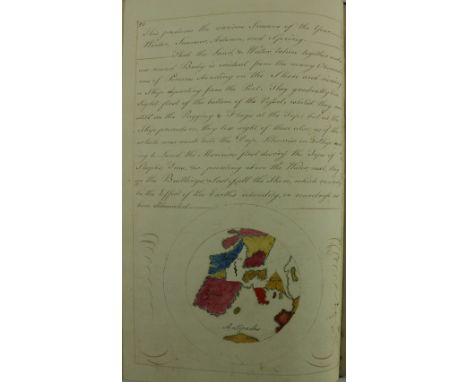 This produces the various Seasons of the Year
Winter, Summer, Autumn, and Spring.
That the Land & Water taken together make
one round Body is evident from the many
of Persons standing on the Shore and
a Ship departing from the Port. They gradually lose
Sight first of the bottom of the Vessel, whilst they
still see the Rigging & Flags at the Top; but as the
Ship proceeds on, they lose sight of these also, as if the
whole was sunk into the Deep. Likewise in a Ship
to Land the Mariners first descry the Tops of
Steeples Trees &c pointing above the Water; next they
the Buildings, and last of all the Shore, which
the Effect of the Earth's
been
Antipodes